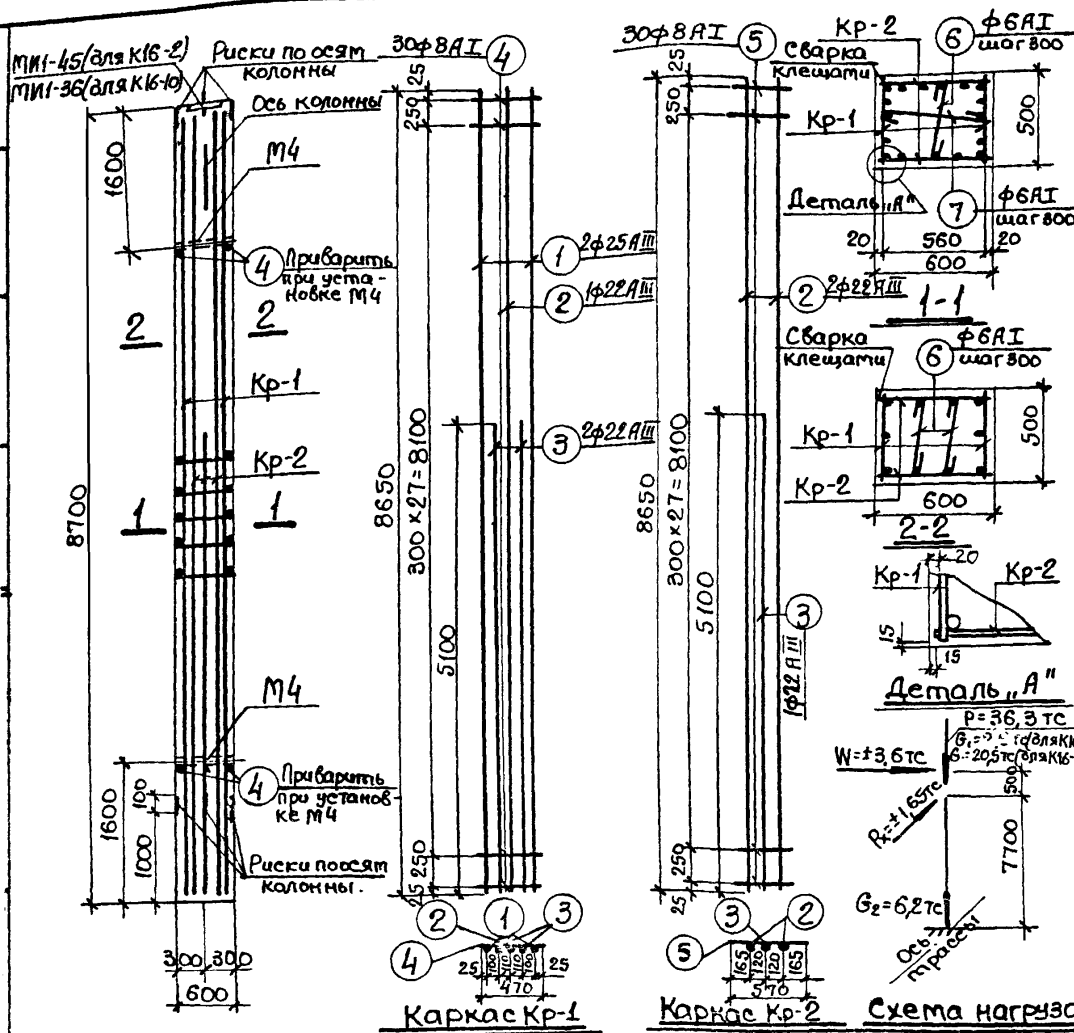 МИ1-45(для К16-2)
МИ1-36(для К16-10)
Риски по осям
колонны
Ось колонны
М4
1600
4
Приварить
при уста-
новке М4
2
2
Кр-1
Кр-2
1
1
8700
М4
4
Приварить
при установ-
ке М4
1600
100
1000
Риски по осям
колонны.
300
300
600
30ф8АI
4
25
250
8650
300×27=8100
5100
1
2ф25АIII
2
1ф22АIII
3
2ф22АIII
250
25
2
1
3
4
25
100
110
110
100
25
470
Каркас Кр-1
30ф8АI
5
25
250
8650
300×27=8100
5100
2
2ф22АIII
3
1ф22АIII
250
25
3
2
5
165
120
120
165
570
Каркас Кр-2
Кр-2
6
ф6АI
шаг 300
Сварка
клещами
Кр-1
500
Деталь „А"
7
ф6АI
шаг 300
20
560
20
600
1-1
Сварка
клещами
6
ф6АI
шаг 300
Кр-1
500
Кр-2
600
2-2
20
Кр-1
Кр-2
15
15
Деталь „А"
Р=36,3 тс
W=±3,6тс
500
±1,65тс
7700
G₂=6,2тс
Ось
трассы
Схема нагрузо